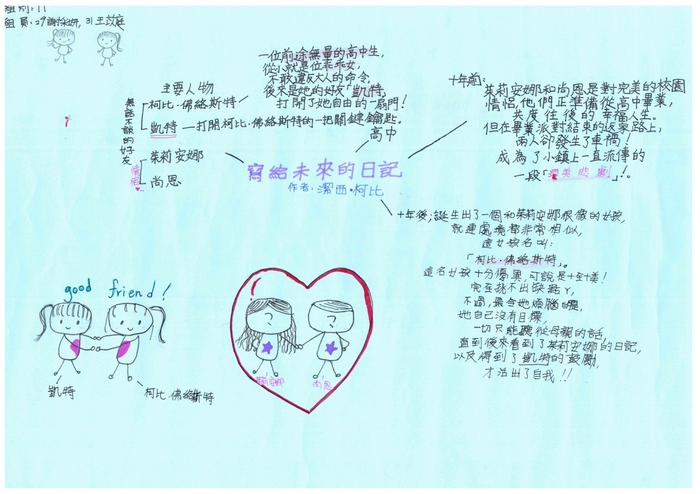 組別：11
組員：29謝
31王苡庭
一位前途無量的高中生，
從小就是位乖乖女，
不敢違反大人的命令，
後來是她的好友「凱特」
打開了她自由的一扇門！
主要人物
無話不談的好友
柯比・佛絡斯特
凱特－打開柯比・佛絡斯特的一把關鍵鑰匙。
高中
情侶
茱莉安娜
尚恩
寫給未來的日記
作者：潔西・柯比
十年前：
茱莉安娜和尚恩是對完美的校園
情侶，他們正準備從高中畢業，
共度往後的幸福人生。
但在畢業派對結束的返家路上，
兩人卻發生了車禍！
成為了小鎮上一直流傳的
一段「淒美悲劇」！。
十年後：誕生出了一個和茱莉安娜很像的女孩，
就連處境都非常相似，
這女孩名叫：
「柯比・佛絡斯特」。
這名女孩十分優異，可說是十全十美！
完全找不出缺點，
不過，最令她煩惱的是，
她自己沒有目標，
一切只能聽從母親的話，
直到後來看到了茱莉安娜的日記，
以及得到了凱特的鼓勵，
才活出了自我！！
good friend！
凱特
柯比・佛絡斯特
茱莉安娜
尚恩